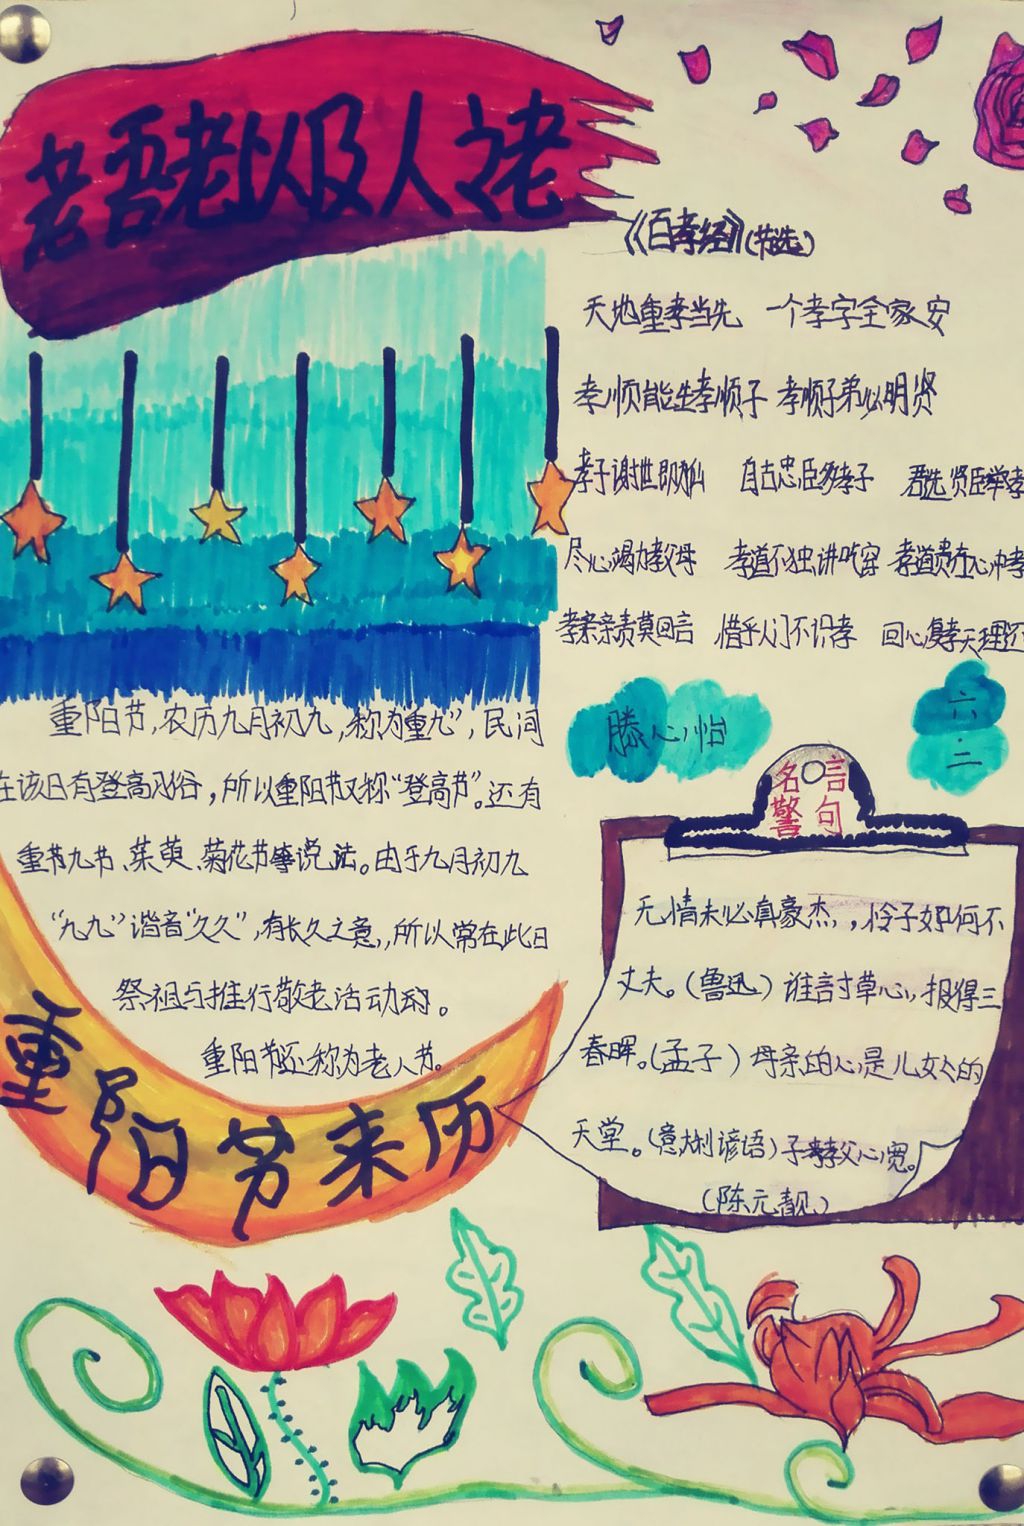 老吾老以及人之老
《百孝经》(节选)
天地重孝当先 一个孝字全家安
孝顺能生孝顺子 孝顺子弟必明贤
孝于谢世即孤 自古忠臣多孝子 君选贤臣举孝
尽心竭力孝父母 孝道不独讲吃穿 孝道贵在心中孝
孝亲亲责莫回言 惜乎人门不识孝 回心复孝天理还
重阳节,农历九月初九,称为"重九",民间
在该日有登高风俗,所以重阳节又称"登高节"。还有
重节九节、茱萸、菊花节等说法。由于九月初九
"九九"谐音"久久",有长久之意,所以常在此日
祭祖与推行敬老活动。
重阳节还称为老人节。
重阳节来历
滕心怡
六·二
名言
警句
无情未必真豪杰,怜子如何不
丈夫。(鲁迅)谁言寸草心,报得三
春晖。(孟子)母亲的心是儿女的
天堂。(意大利谚语)子孝父心宽。
(陈元靓)